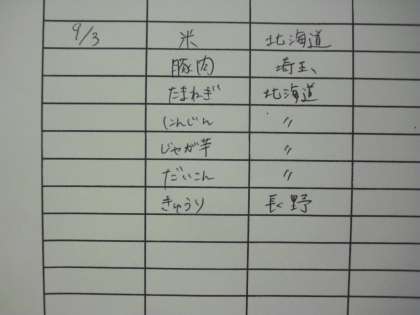 9/3 米 北海道
豚肉 埼玉、
たまねぎ 北海道
にんじん 〃
じゃが芋 〃
だいこん 〃
きゅうり 長野